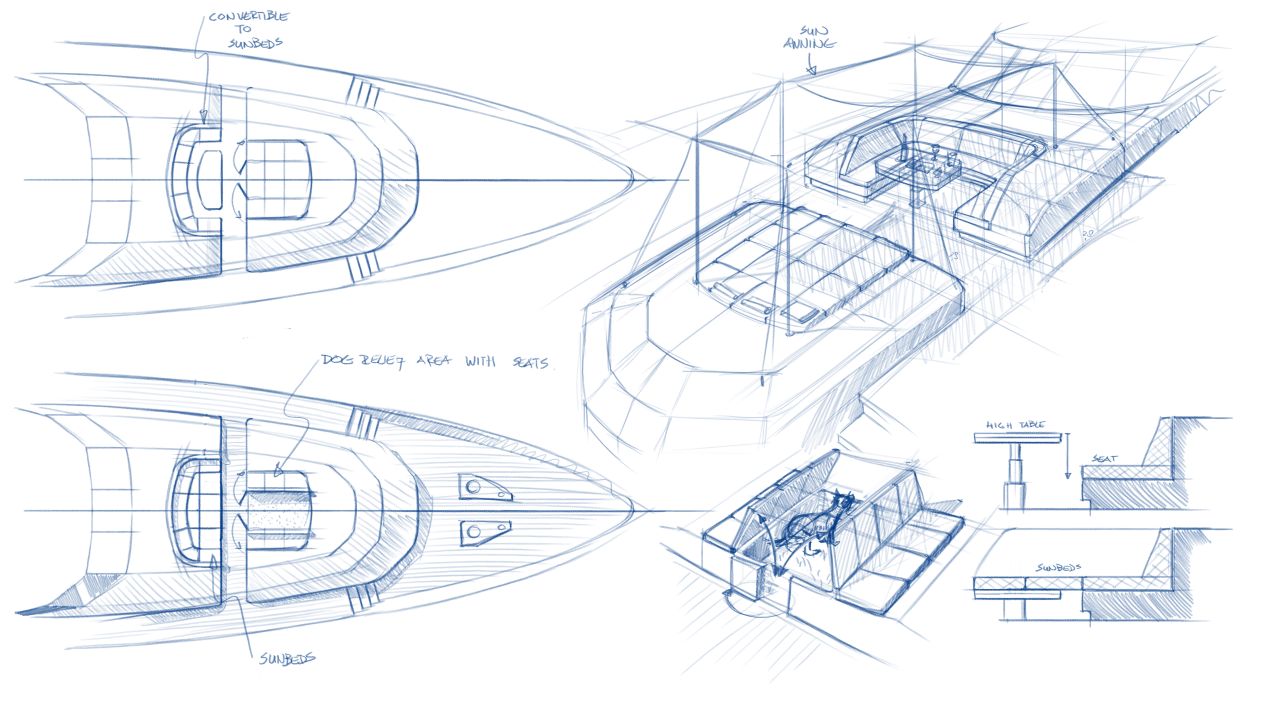 CONVERTIBLE
TO
SUNBEDS
SUN
AWNING
DOG RELIEF AREA WITH SEATS
HIGH TABLE
SEAT
SUNBEDS
SUNBEDS